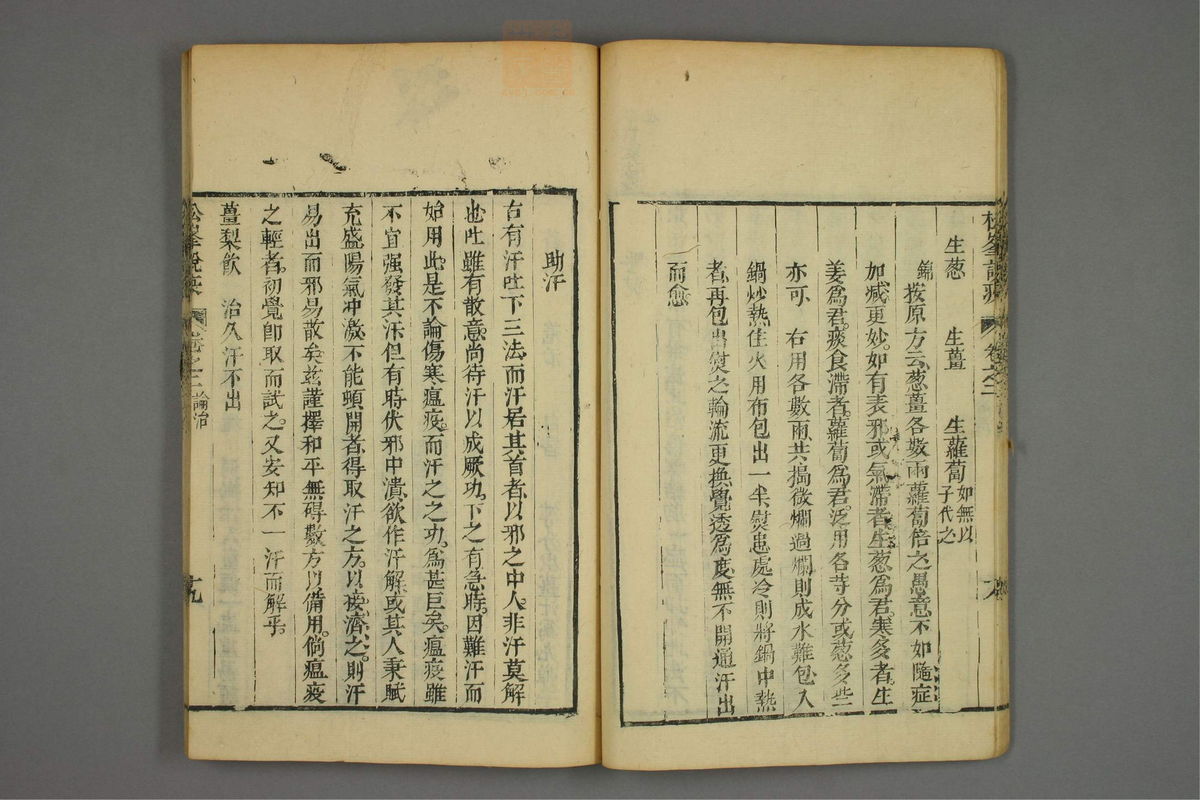 松峯說疫 卷之二
生葱 生薑 生蘿蔔如無以子代之
錦按原方云葱薑各數兩蘿蔔倍之愚意不如隨症
加減更妙。如有表邪或氣滯者生葱爲君。寒多者生
姜爲君。痰食滯者。蘿蔔爲君。泛用各等分或葱多些
亦可 右用各數兩共搗微爛過爛則成水難包入
鍋炒熱住火用布包出一半熨患處冷則將鍋中熱
者再包出熨之輪流更換覺透爲度無不開通汗出
而愈
助汗
右有汗吐下三法而汗居其首者以邪之中人。非汗莫解
也吐雖有散意尚待汗以成厥功。下之有急時。因難汗而
始用此是不論傷寒瘟疫。而汗之之功。爲甚巨矣。瘟疫雖
不宜强發其汗。但有時伏邪中潰。欲作汗解。或其人秉賦
充盛陽氣冲激不能頓開者。得取汗之方。以接濟之。則汗
易出而邪易散矣。茲謹擇和平無碍數方以備用。倘瘟疫
之輕者。初覺卽取而試之。又安知不一汗而解乎。
薑梨飲 治久汗不出
松峯說疫 卷之二 論治 十九